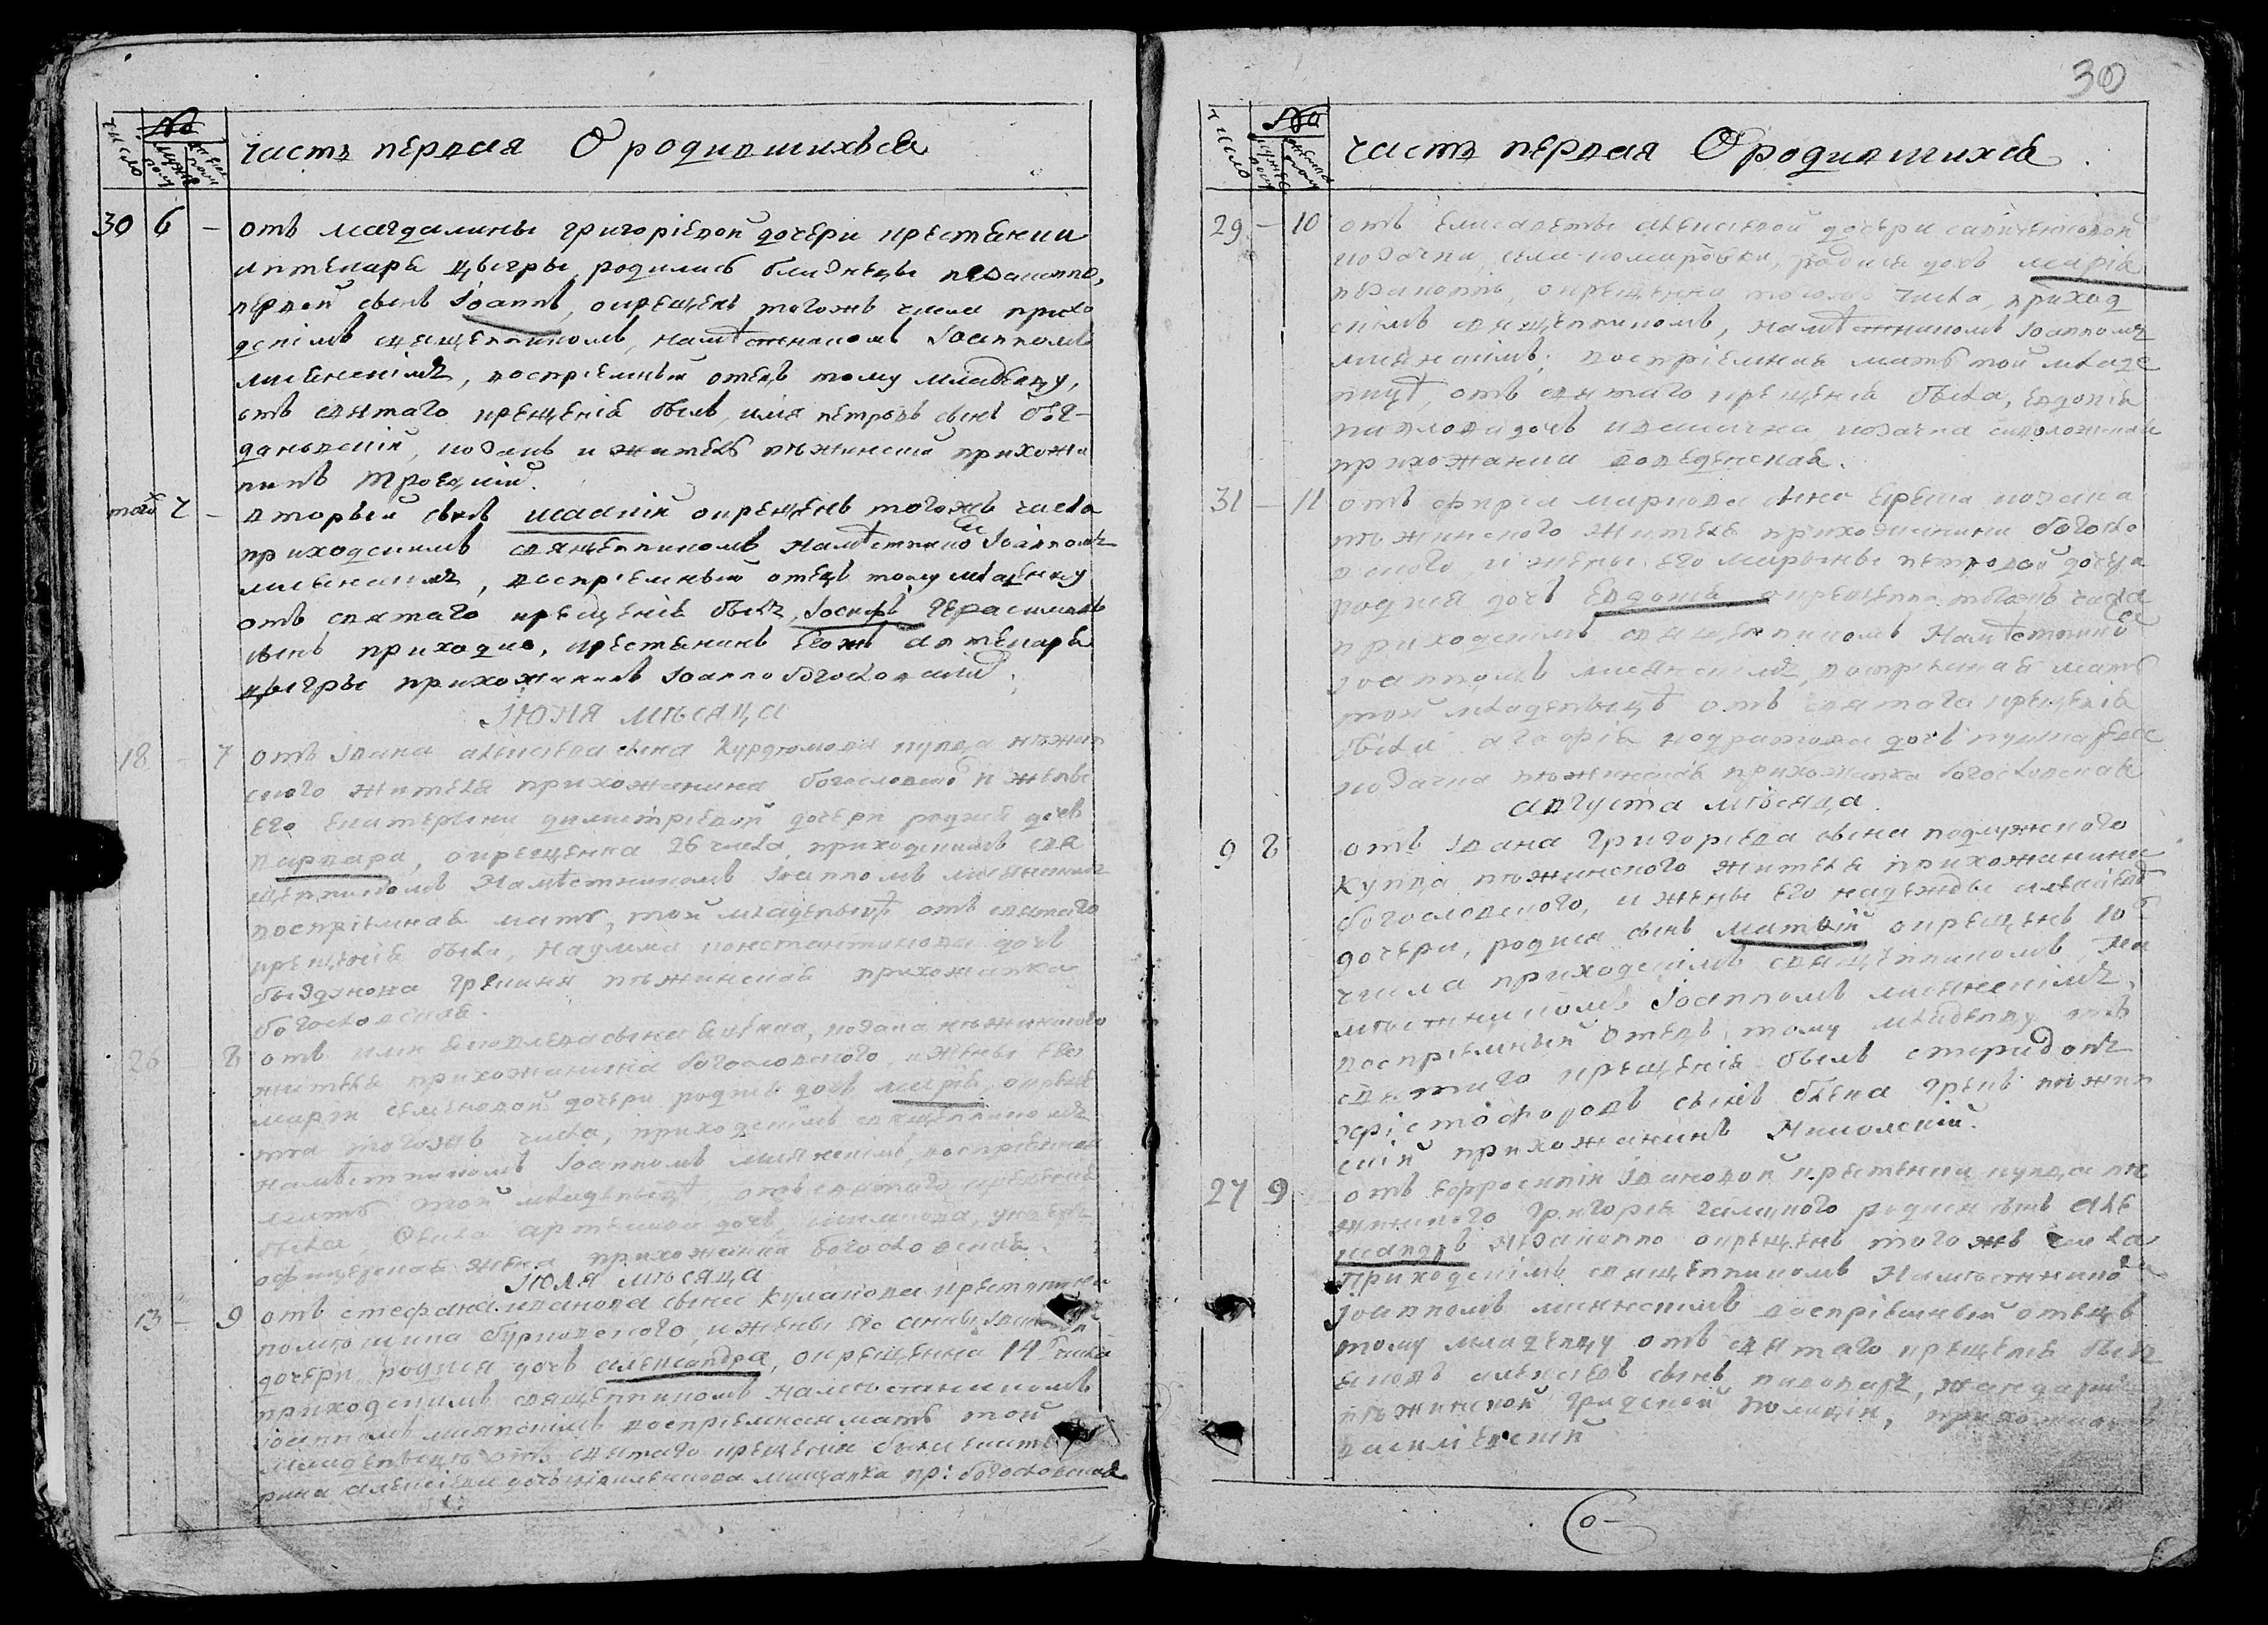 30
число
№
мужеска полу
женска полу
часть первая О родившихъся
30 6 – отъ магдалины григоріевой дочери крестянки
аптекаря цыгры, родились близнецы незаконно,
первой сынъ Іоаннъ, окрещенъ тогожъ числа прихо
дскімъ священникомъ, намѣстникомъ Іоанномъ
миянскімъ, воспріемный отецъ тому младенцу,
отъ святаго крещенія былъ, илія петровъ сынъ
козакъ и житель нѣжинскій прихожа
нинъ троецкій.
того 7 – вторый сынъ исаакій окрещенъ тогожъ числа
приходскимъ священникомъ намѣстнико Іоанномъ
миянскимъ, воспріемный отецъ тому младенцу
отъ святаго крещенія былъ, Іосифъ герасимовъ
сынъ приходко, крестянинъ егожъ аптекаря
цыгры прихожанинъ Іоанно богословскій.
Июня мѣсяца
18 – 7 отъ Івана алексѣева сына Курдюмова купца нѣжин
ского жителя прихожанина богословско и жены
его екатерины димитріевой дочери родися дочь
варвара, окрещенна 26 числа, приходскимъ свя
щенникомъ Намѣстникомъ Іоанномъ миянскимъ
воспріемная мать, той младеницѣ отъ святаго
крещенія была, наумма константинова дочь
грекиня нѣжинская прихожанка
богословская.
26 8 отъ иліи сына козака нѣжинского
жителя прихожанина богословского, и жены его
маріи семеновой дочери родись дочь марія, окреще
нна тогожъ числа, приходскімъ священникомъ
намѣстникомъ Іоанномъ миянскімъ, воспріемная
мать той младеницѣ отъ святаго крещенія
была, Фекла артемова дочь,
офицерская жена прихожанка богословская.
Июля мѣсяца
13 – 9 отъ стефана иванова сына Кулакова крестянина
помѣщика и жены его анны
дочери родися дочь александра, окрещенна 14 числа
приходскимъ священникомъ намѣстникомъ
Іоанномъ миянскімъ воспріемная мать той
младеницѣ отъ святаго крещенія была екате
рина алексіева дочь мищанка пр: богословская
число
№
мужеска полу
женска полу
часть первая О родившихся.
29 – 10 отъ елисаветы алексіевой дочери
козачки, села комаровки, родися дочь марія
незаконно, окрещенна тогожъ числа, приход
скімъ священникомъ, намѣстникомъ Іоанномъ
миянскімъ; воспріемная мать той младе
ницѣ, отъ святаго крещенія была, евдокія
дочь козачка
прихожанка введенская.
31 – 11 отъ маркова сына козака
нѣжинского жителя прихожанина богосло
вского, и жены его марины петровой дочери
родися дочь евдокія окрещенна тогожъ числа
приходскимъ священникомъ Намѣстнико
Іоанномъ миянскимъ, воспріемная мать
той младеницѣ отъ святаго крещенія
была агафія кодратова дочь
козачка нѣжинская прихожанка богословская
августа мѣсяца.
9 8 отъ Івана григоріева сына подлужского
купца нѣжинского жителя прихожанина
богословского, и жены его надежды
дочери, родися сынъ матвій окрещенъ 10
числа приходскімъ священникомъ, На
мѣстникомъ Іоанномъ миянскімъ,
воспріемный отецъ тому младенцу отъ
святаго крещенія былъ спиридонъ
христофоровъ сынъ грекъ нѣжин
скій прихожанинъ Николскій.
27 9 отъ ефросиніи Івановой крестянки купца нѣ
жинского григорія родися сынъ але
ксандръ незаконно окрещенъ тогожъ числа
приходскімъ священникомъ Намѣстнико
Іоанномъ миянскимъ воспріемный отецъ
тому младенцу отъ святаго крещенія былъ
яковъ алексіевъ сынъ жандармъ
нѣжинской градской полиціи, прихожанинъ
василіевскій
Со–